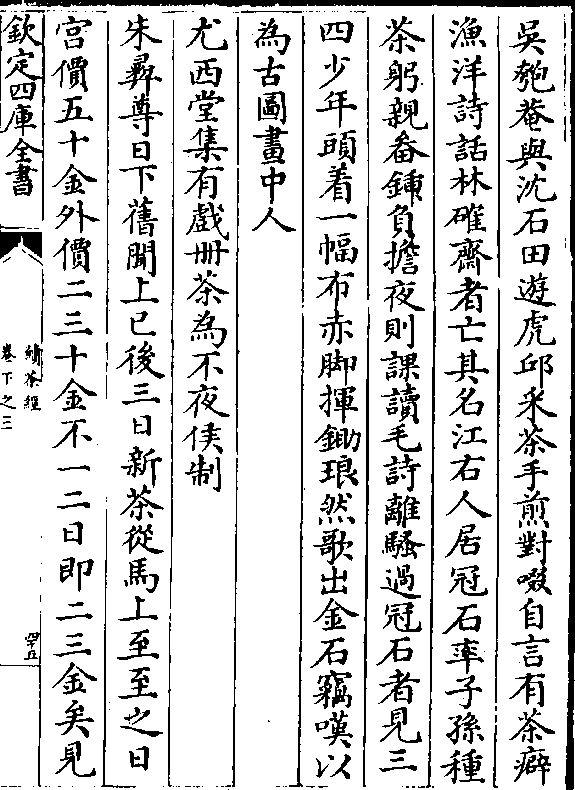 吳匏菴與沈石田遊虎邱采茶手煎對啜自言有茶癖
漁洋詩話林確齋者亡其名江右人居冠石率子孫種
茶躬親畚鍤負擔夜則課讀毛詩離騷過冠石者見三
四少年頭着一幅布赤脚揮鋤琅然歌出金石竊嘆以
為古圖畫中人
尤西堂集有戲冊茶為不夜侯制
朱彝尊日下舊聞上巳後三日新茶從馬上至至之日
宮價五十金外價二三十金不一二日即二三金矣見
欽定四庫全書
續茶經
卷下之三
四十五